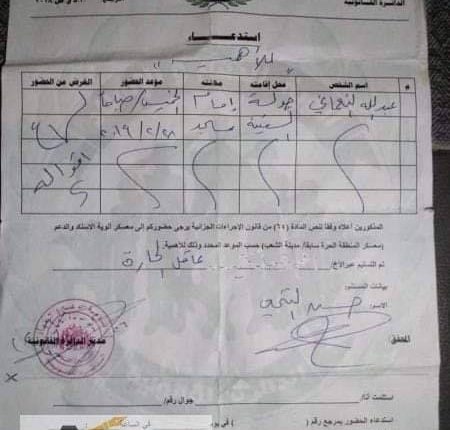 الدائرة القانونية
إستدعاء
للأهمية
م اسم الشخص محل إقامته صلاته موعد الحضور الغرض من الحضور
عبدالله جولة إمام الخميس/صباحاً
السفينة مسجد ٢٠١٩/٢/٢٨ أقواله
المذكورين أعلاه وفقاً لنص المادة (٦٤) من قانون الإجراءات الجزائية يرجى حضوركم إلى معسكر ألوية الإسناد والدعم
(معسكر المنطقة الحرة سابقاً/ مدينة الشعب) حسب الموعد المحدد وذلك للأهمية.
تم التسليم عبر الأخ/ عاقل الحارة
بيانات المستلم:
الاسم/
المحقق
مدير الدائرة القانونية
استلمت أنا/ جوال رقم/
استدعاء الحضور بمرجع رقم ( ) في الساعة